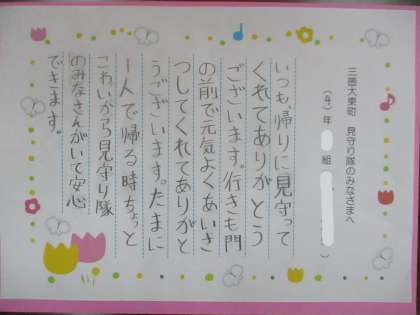 三園大東町　見守り隊のみなさまへ
(4) 年　組
いつも、帰りに見守って
くれてありがとう
ございます。行きも門
の前で元気よくあいさ
つしてくれてありがと
うございます。たまに
1人で帰る時ちょっと
こわいから見守り隊
のみなさんがいて安心
できます。